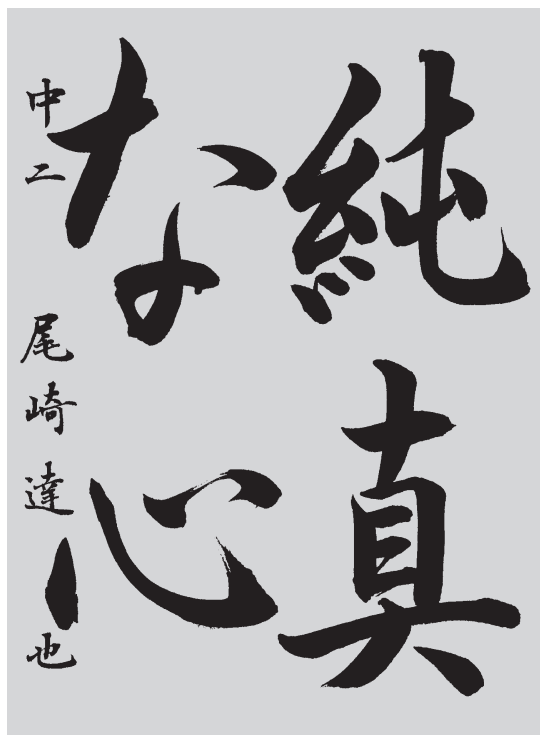 純真
な心
中二 尾崎達也